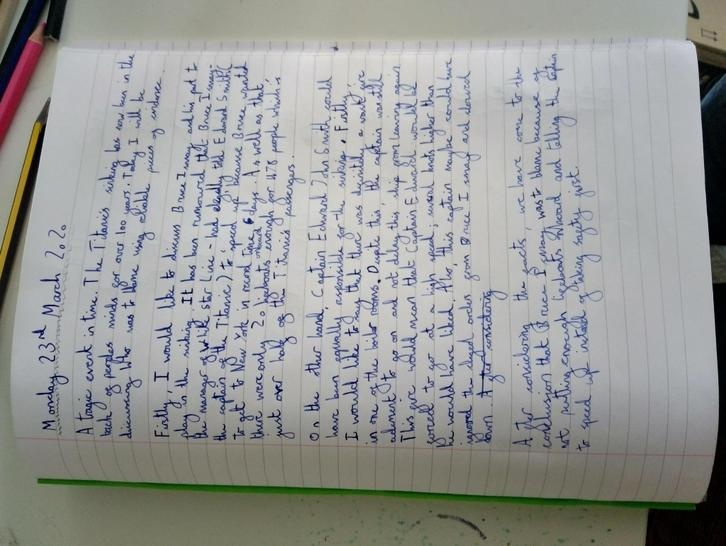 Monday 23rd March 2020
A tragic event in time. The Titanic's sinking has now been in the
back of peoples minds for over 100 years. Today I will be
discussing who was to blame using reliable pieces of evidence.
Firstly, I would like to discuss Bruce Ismay and his part to
play in the sinking. It has been rumoured that Bruce Ismay-
the manager of White Star Line - had allegedly told Edward Smith(
the captain of the Titanic) to speed up because Bruce wanted
to get to New York in record time, 6 days. As well as that,
there were only 20 lifeboats onboard enough for 1178 people which is
just over half of the Titanic's passengers.
On the other hand, Captain Edward John Smith could
have been equally responsible for the sinking. Firstly,
I would like to say that there was decidedly a small fire
in one of the boiler rooms. Despite this, the captain was still
adement to go on and not delay this ship from leaving again
This fire would mean that Captain Edward would be
forced to go at a high speed; several knots higher than
he would have liked. Also, this captain maybe could have
ignored the alleged order from Bruce Ismay and slowed
down. After considering
After considering the facts, we have come to the
conclusion that Bruce Ismay was to blame because of
not putting enough lifeboats onboard and telling the captain
to speed up instead of taking safety first.